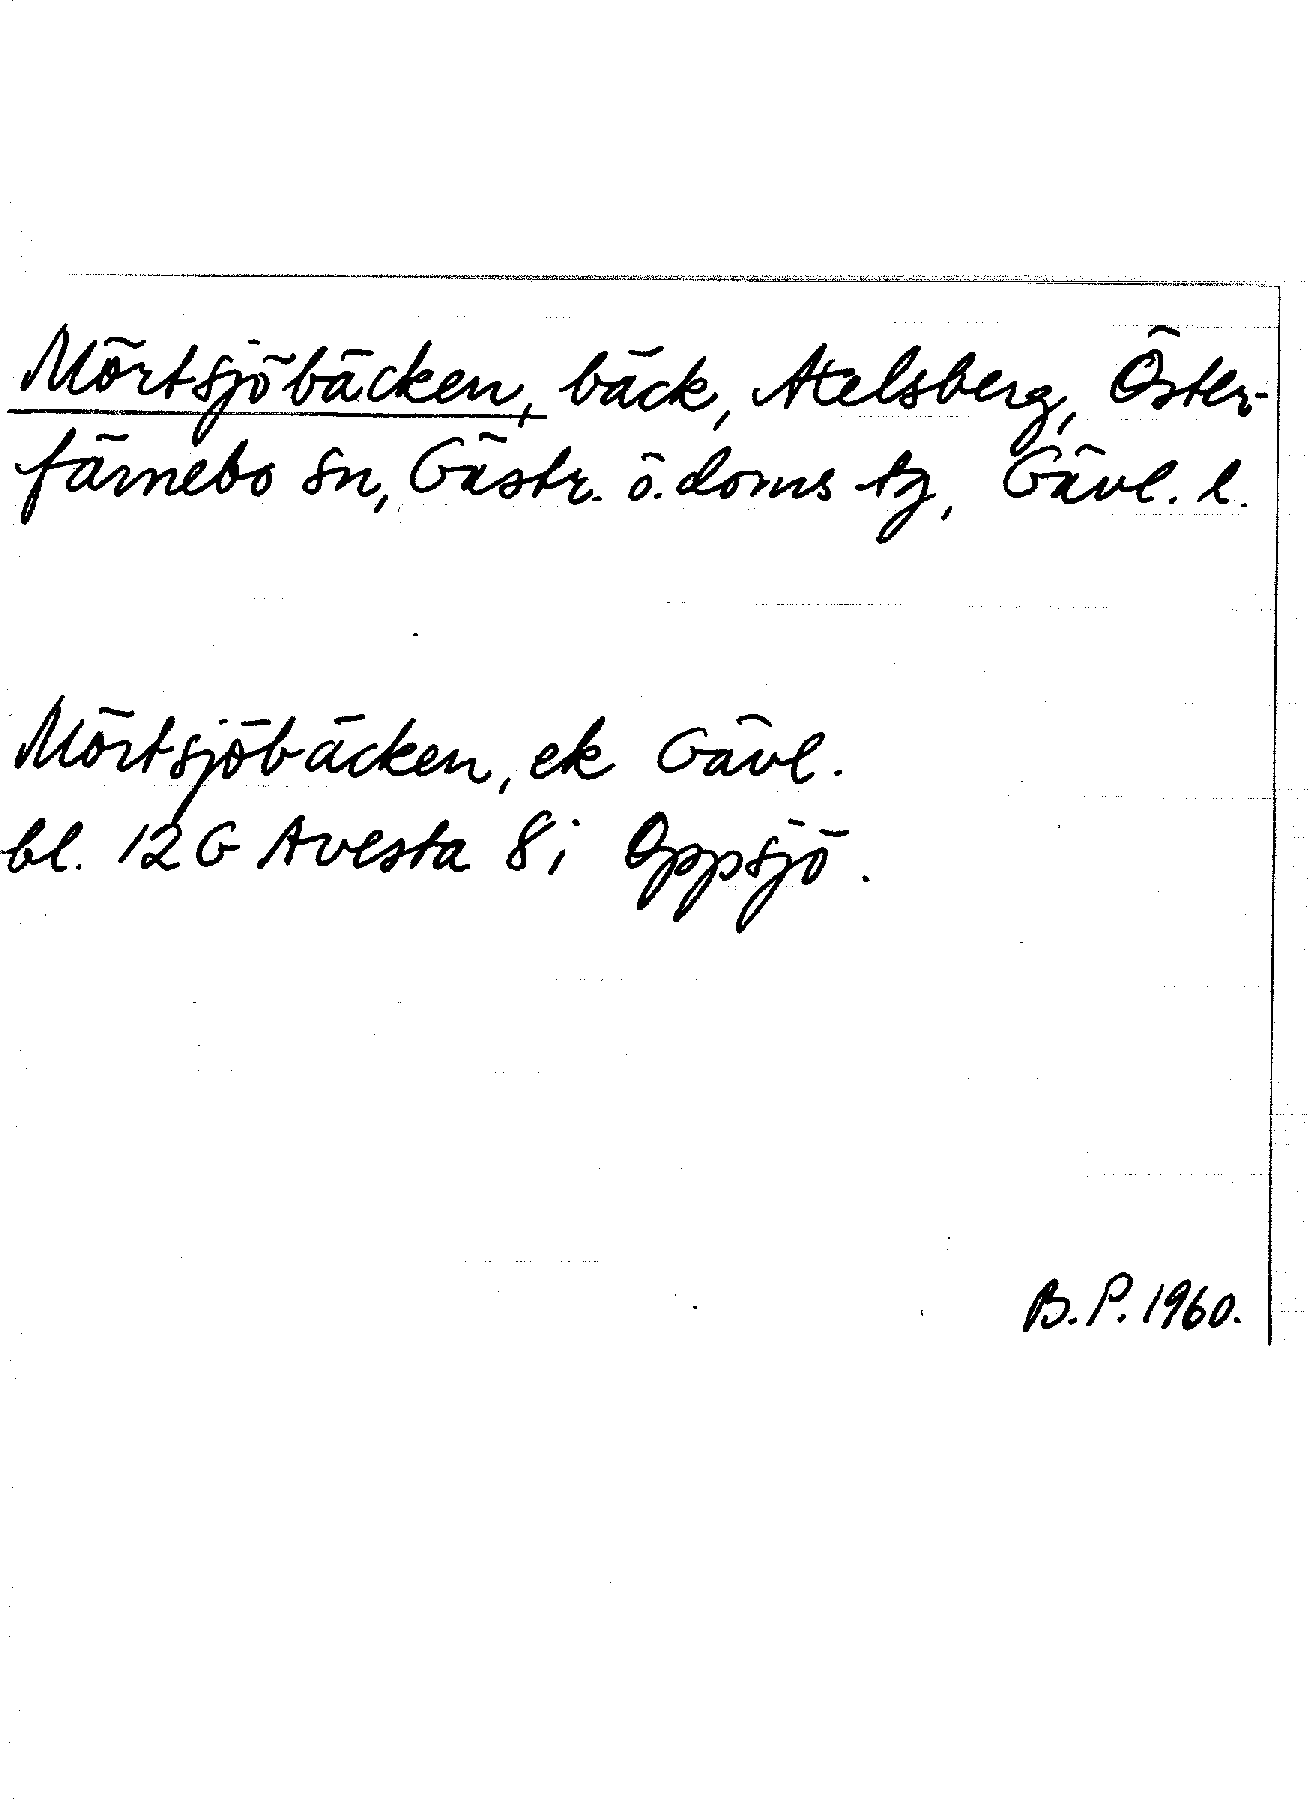 Mörtsjöbäcken, bäck, Atelsberg, Öster-
färnebo sn, Gästr. ö. doms tg, Gävl. l.
Mörtsjöbäcken, ek Gävl.
bl. 12G Avesta 8i Oppsjö.
B.P. 1960.